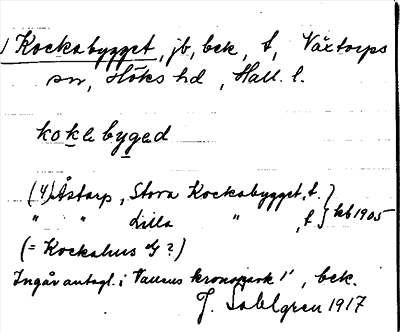 Kockabygget, jb, bek, t, Växtorps
sn, Höks hd, Hall. l.
kokabyged
(4) Åstarp, Stora Kockabygget, t. } kb 1905
" " Lilla " , t }
(= Kockahus G ?)
Ingår antagl. i Vallens kronopark 1', bek.
J. Sahlgren 1917